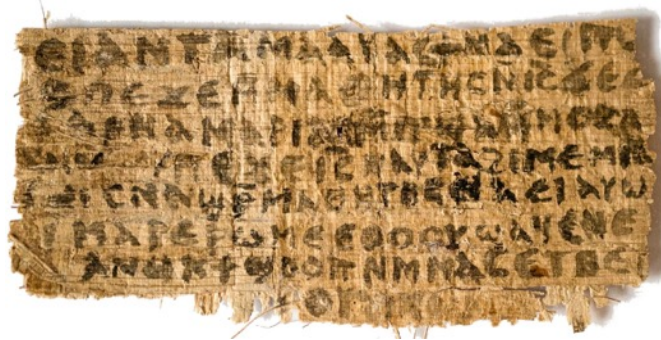 ⲉⲓ ⲁⲛ ⲧⲁⲙⲁⲁⲩ ⲁⲥϯ ⲛⲁⲉⲓ ⲡⲱ
ⲥ ⲡⲉϫⲉ ⲙⲙⲁⲑⲏⲧⲏⲥ ⲛⲓ̅ⲥ̅ ϫⲉ ⲥ
ⲁⲣⲛⲁ ⲙⲁⲣⲓⲁⲙ ⲙⲡϣⲁ ⲙⲙⲟⲥ ⲁ
ⲡⲉϫⲉ ⲓ̅ⲥ̅ ⲛⲁⲩ ⲧⲁϩⲓⲙⲉ ⲙⲛ
ⲥⲛⲁϣⲣⲙⲁⲑⲏⲧⲏⲥ ⲛⲁⲉⲓ ⲁⲩⲱ
ⲓ ⲙⲁⲣⲉⲣⲱⲙⲉ ⲉⲑⲟⲟⲩ ϣⲁϥⲉ ⲛⲉ
ⲁⲛⲟⲕ ϯϣⲟⲟⲡ ⲛⲙⲙⲁⲥ ⲉⲧⲃⲉ